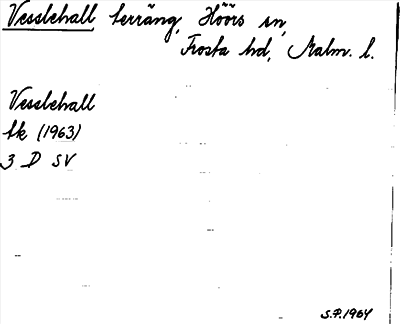 Vesslehall, terräng, Höörs sn,
Frosta hd, Malm. l.
Vesslehall
tk (1963)
3 D SV
S.P. 1964